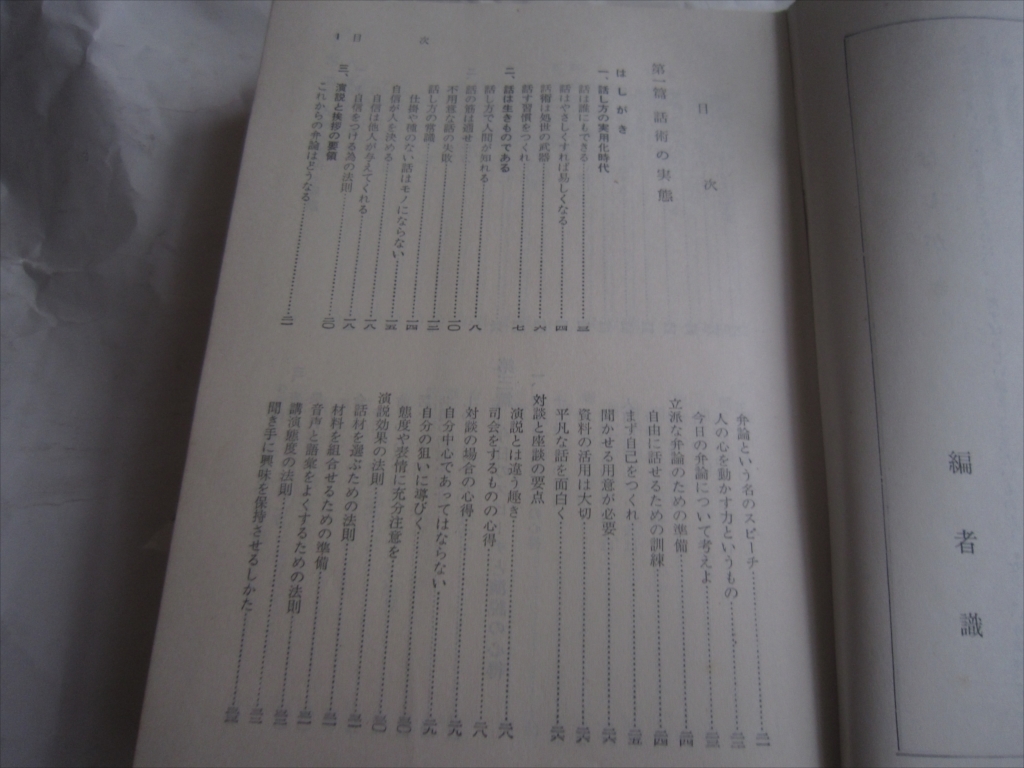 編者識
目次
第一篇 話術の実態
はしがき
一、話し方の実用化時代
話は誰にもできる……三
話はやさしくすれば易しくなる……四
話術は処世の武器……六
話す習慣をつくれ……七
二、話は生きものである
話し方で人間が知れる……八
話の筋は通せ
不用意な話の失敗……一〇
話し方の常識……一三
仕掛や種のない話はモノにならない……一四
自信が人を決める……一五
自信は他人が与えてくれる……一八
自信をつける為の法則……一八
三、演説と挨拶の要領……二〇
これからの弁論はどうなる……二一
弁論という名のスピーチ
人の心を動かす力というもの
今日の弁論について考えよ
立派な弁論のための準備
自由に話せるための訓練
まず自己をつくれ
聞かせる用意が必要
資料の活用は大切
平凡な話を面白く
対談と座談の要点
演説とは違う趣き
司会をするものの心得
対談の場合の心得
自分中心であってはならない
自分の狙いに導びく
態度や表情に充分注意を
演説効果の法則
話材を選ぶための法則
材料を組合せるための準備
音声と語葉をよくするための法則
講演態度の法則
聞き手に興味を保持させるしかた
1 目次